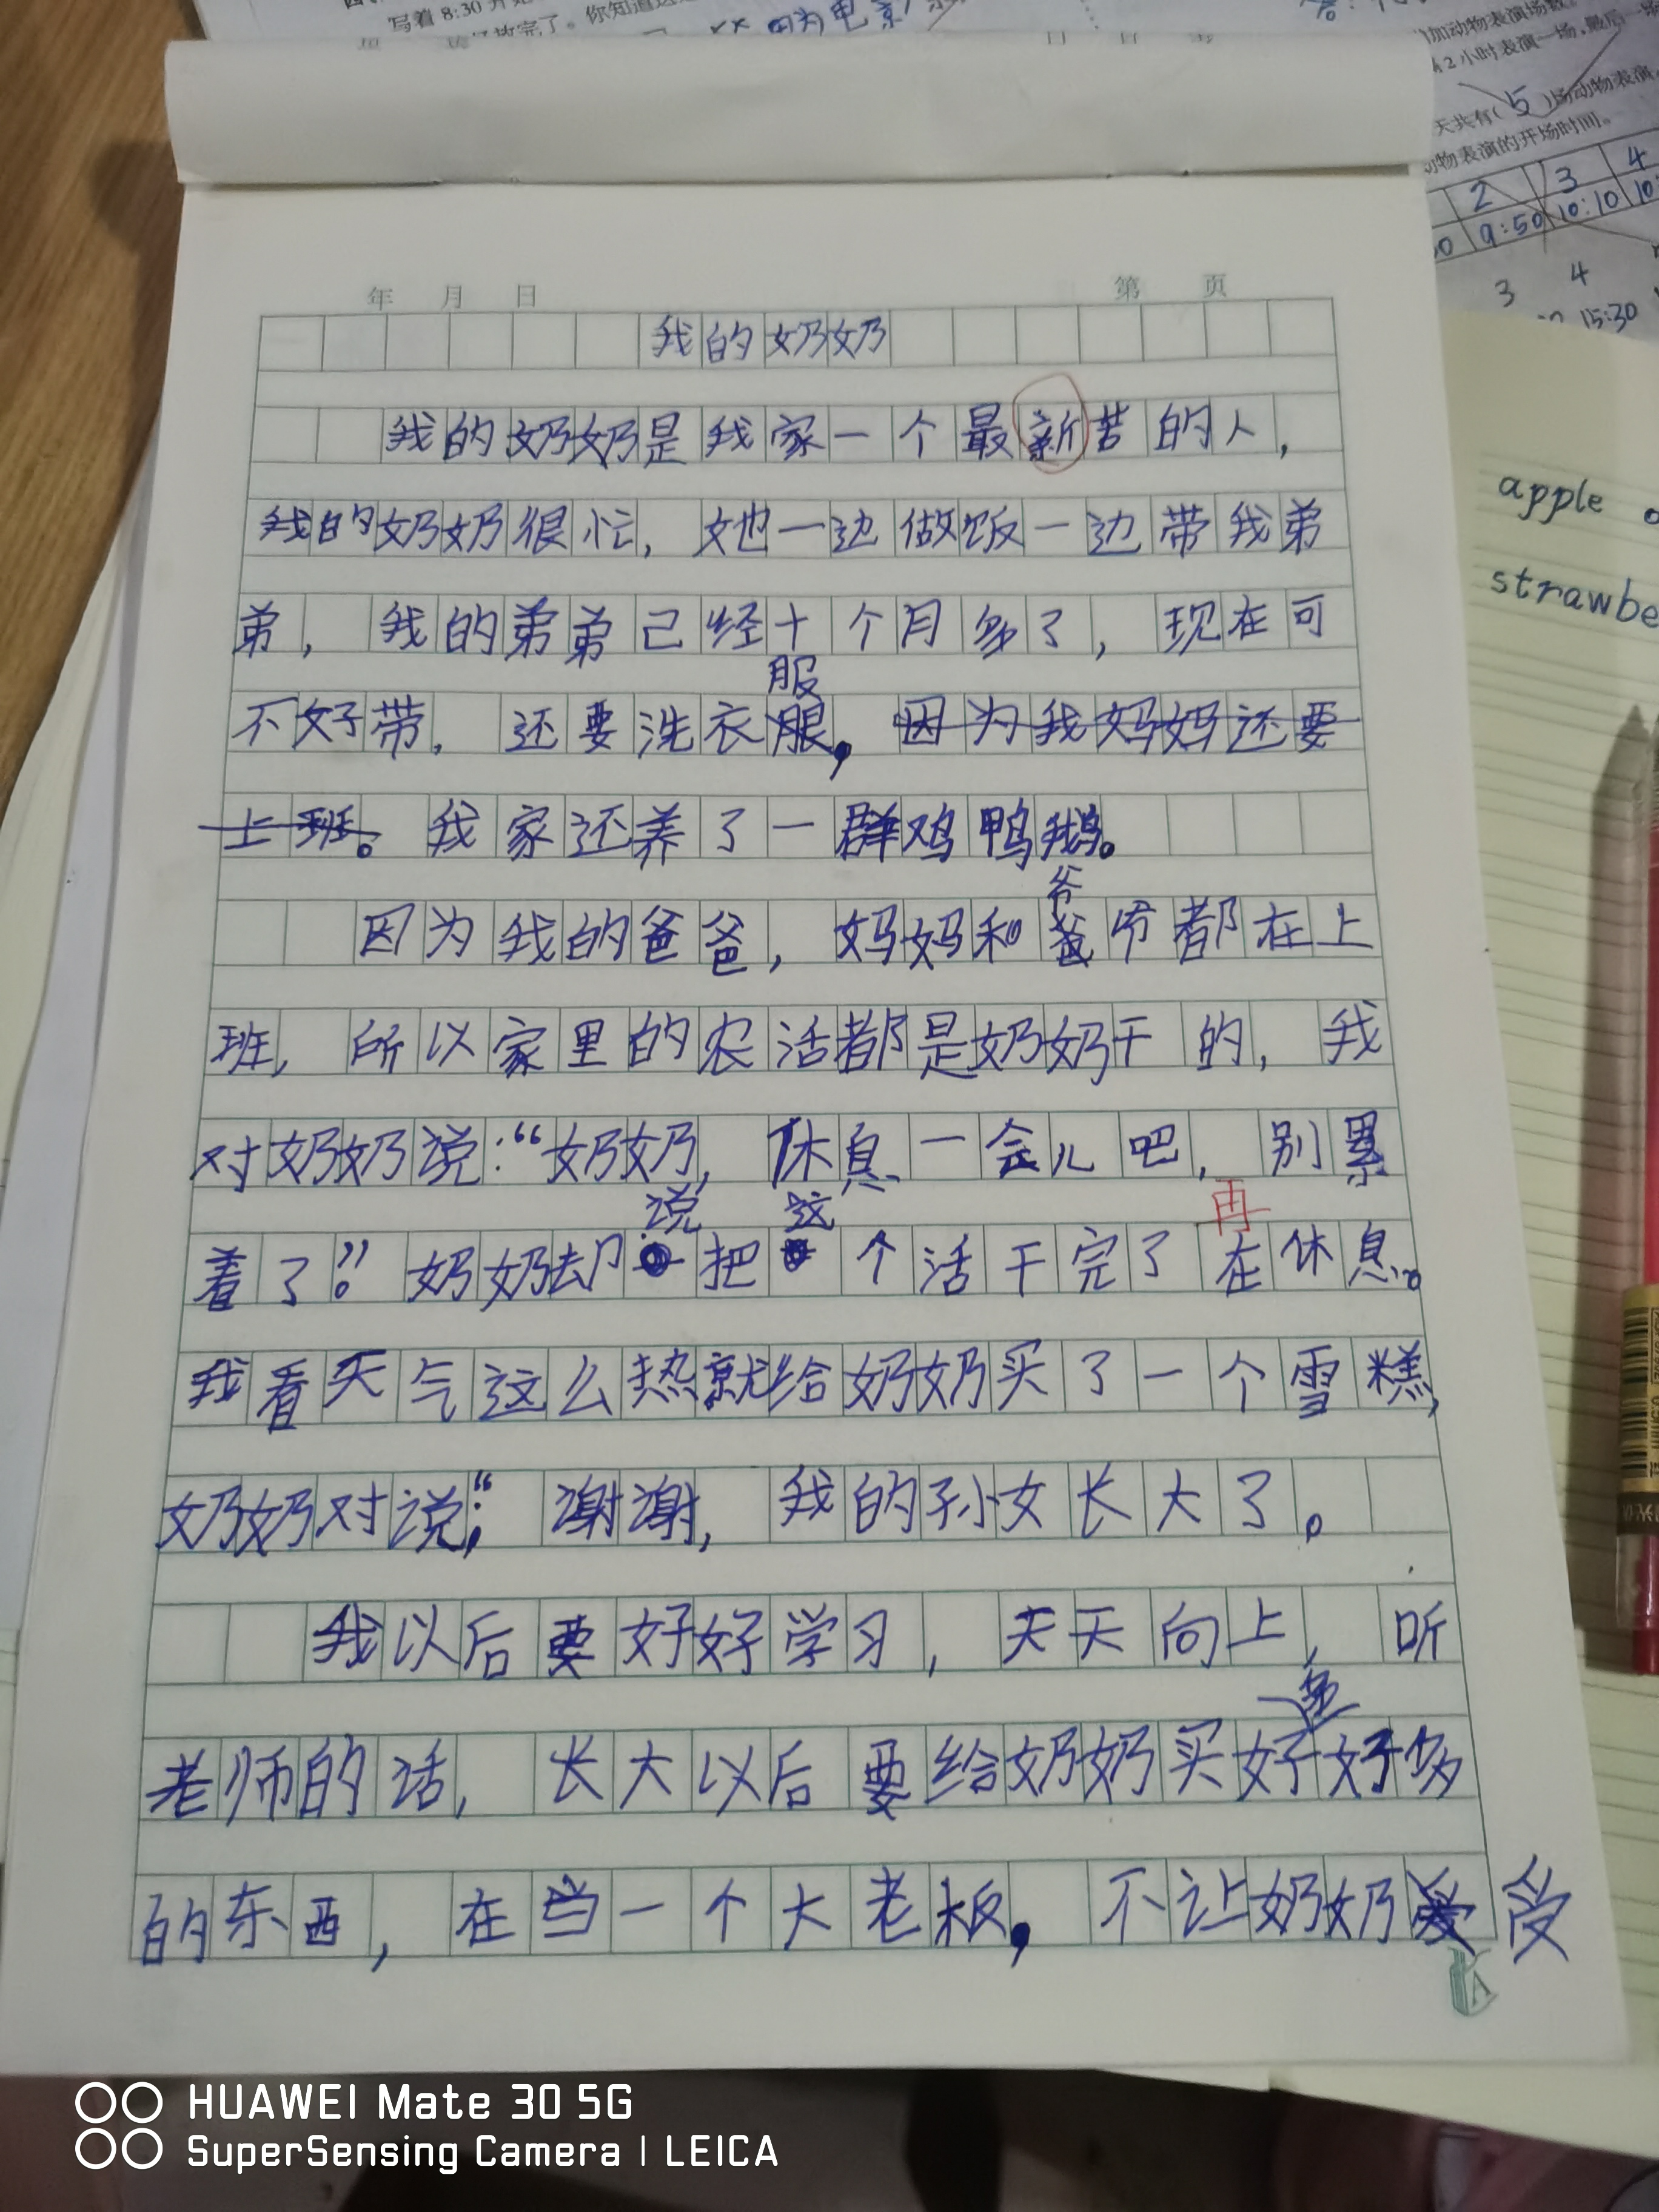 写着8:30开
因为电影
加动物表演场数。
2小时表演一场,最后一场
天共有(5)场动物表演
动物表演的开场时间。
2 3 4
9:50 10:10 10
3 4
15:30
apple
strawbe
年 月 日 第 页
我的奶奶
我的奶奶是我家一个最新苦的人,
我的奶奶很忙,她一边做饭一边带我弟
弟,我的弟弟已经十个月多了,现在可
服
不好带,还要洗衣服,因为我妈妈还要
上班。我家还养了一群鸡鸭鹅。
爷
因为我的爸爸,妈妈和爸爷都在上
班,所以家里的农活都是奶奶干的,我
对奶奶说:“奶奶,休息一会儿吧,别累
说 这 再
着了”。奶奶却把个活干完了在休息。
我看天气这么热就给奶奶买了一个雪糕,
奶奶对说:“谢谢,我的孙女长大了。
我以后要好好学习,天天向上,听
老师的话,长大以后要给奶奶买好好多
的东西,在当一个大老板,不让奶奶受
HUAWEI Mate 30 5G
SuperSensing Camera | LEICA